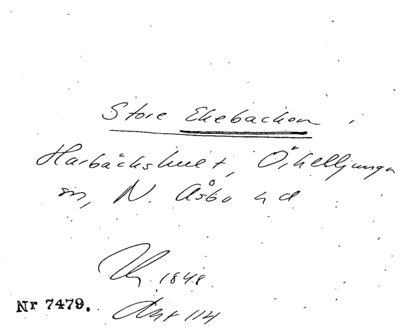 Store Ekebacken
Harbäckshult, Örkelljunga
sn, N. Åsbo hd
1848
Nr 7479.
114